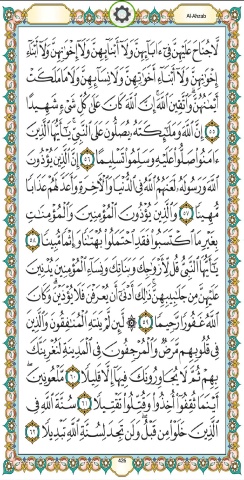 Al-Ahzab
لَّا جُنَاحَ عَلَيْهِنَّ فِىٓ ءَابَآئِهِنَّ وَلَآ أَبْنَآئِهِنَّ وَلَآ إِخْوَٰنِهِنَّ وَلَآ أَبْنَآءِ
إِخْوَٰنِهِنَّ وَلَآ أَبْنَآءِ أَخَوَٰتِهِنَّ وَلَا نِسَآئِهِنَّ وَلَا مَا مَلَكَتْ
أَيْمَٰنُهُنَّ ۗ وَٱتَّقِينَ ٱللَّهَ ۚ إِنَّ ٱللَّهَ كَانَ عَلَىٰ كُلِّ شَىْءٍ شَهِيدًا
٥٥ إِنَّ ٱللَّهَ وَمَلَٰٓئِكَتَهُۥ يُصَلُّونَ عَلَى ٱلنَّبِىِّ ۚ يَٰٓأَيُّهَا ٱلَّذِينَ
ءَامَنُوا۟ صَلُّوا۟ عَلَيْهِ وَسَلِّمُوا۟ تَسْلِيمًا ٥٦ إِنَّ ٱلَّذِينَ يُؤْذُونَ
ٱللَّهَ وَرَسُولَهُۥ لَعَنَهُمُ ٱللَّهُ فِى ٱلدُّنْيَا وَٱلْءَاخِرَةِ وَأَعَدَّ لَهُمْ عَذَابًا
مُّهِينًا ٥٧ وَٱلَّذِينَ يُؤْذُونَ ٱلْمُؤْمِنِينَ وَٱلْمُؤْمِنَٰتِ
بِغَيْرِ مَا ٱكْتَسَبُوا۟ فَقَدِ ٱحْتَمَلُوا۟ بُهْتَٰنًا وَإِثْمًا مُّبِينًا ٥٨
يَٰٓأَيُّهَا ٱلنَّبِىُّ قُل لِّأَزْوَٰجِكَ وَبَنَاتِكَ وَنِسَآءِ ٱلْمُؤْمِنِينَ يُدْنِينَ
عَلَيْهِنَّ مِن جَلَٰبِيبِهِنَّ ۚ ذَٰلِكَ أَدْنَىٰٓ أَن يُعْرَفْنَ فَلَا يُؤْذَيْنَ ۗ وَكَانَ
ٱللَّهُ غَفُورًا رَّحِيمًا ٥٩ ۞ لَّئِن لَّمْ يَنتَهِ ٱلْمُنَٰفِقُونَ وَٱلَّذِينَ
فِى قُلُوبِهِم مَّرَضٌ وَٱلْمُرْجِفُونَ فِى ٱلْمَدِينَةِ لَنُغْرِيَنَّكَ
بِهِمْ ثُمَّ لَا يُجَاوِرُونَكَ فِيهَآ إِلَّا قَلِيلًا ٦٠ مَّلْعُونِينَ ۖ
أَيْنَمَا ثُقِفُوٓا۟ أُخِذُوا۟ وَقُتِّلُوا۟ تَقْتِيلًا ٦١ سُنَّةَ ٱللَّهِ فِى
ٱلَّذِينَ خَلَوْا۟ مِن قَبْلُ ۖ وَلَن تَجِدَ لِسُنَّةِ ٱللَّهِ تَبْدِيلًا ٦٢
426